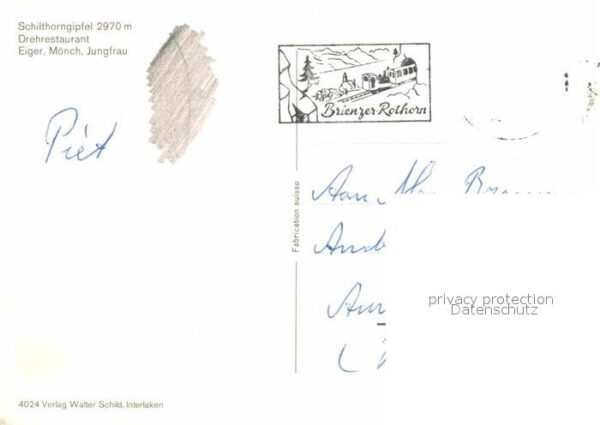 Schilthorngipfel 2970 m
Drehrestaurant
Eiger, Mönch, Jungfrau
Piet
Brienzer Rothorn
Fabrication suisse
Aan
privacy protection
Datenschutz
4024 Verlag Walter Schild, Interlaken